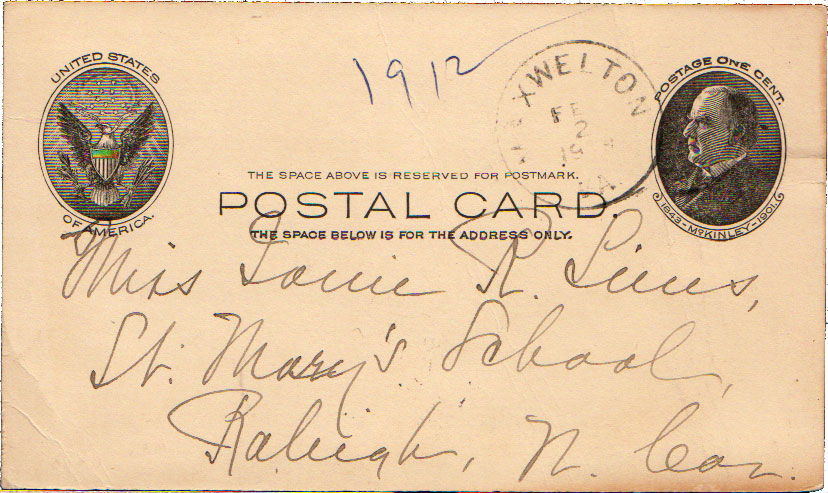 1912
UNITED STATES
OF AMERICA.
XWELTON
FE
2
19
VA
POSTAGE ONE CENT.
1843-McKINLEY-1901.
THE SPACE ABOVE IS RESERVED FOR POSTMARK.
POSTAL CARD.
THE SPACE BELOW IS FOR THE ADDRESS ONLY.
Miss R.
St. Mary's School,
Raleigh, N. Car.